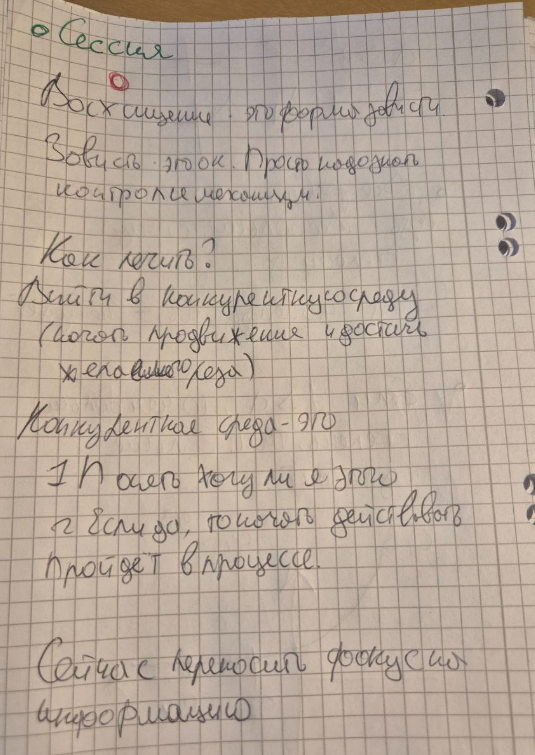 Сессия
Восхищение - это форма зависти
Зависть - это ок. Просто надо знать
контроль механизм.
Как лечить?
Выйти в конкурентную среду
(начать продвижение и достичь
желаемого реза)
Конкурентная среда - это
1 Понять хочу ли я этого
2 Если да, то начать действовать
Пройдет в процессе.
Сейчас переносить фокус на
информацию